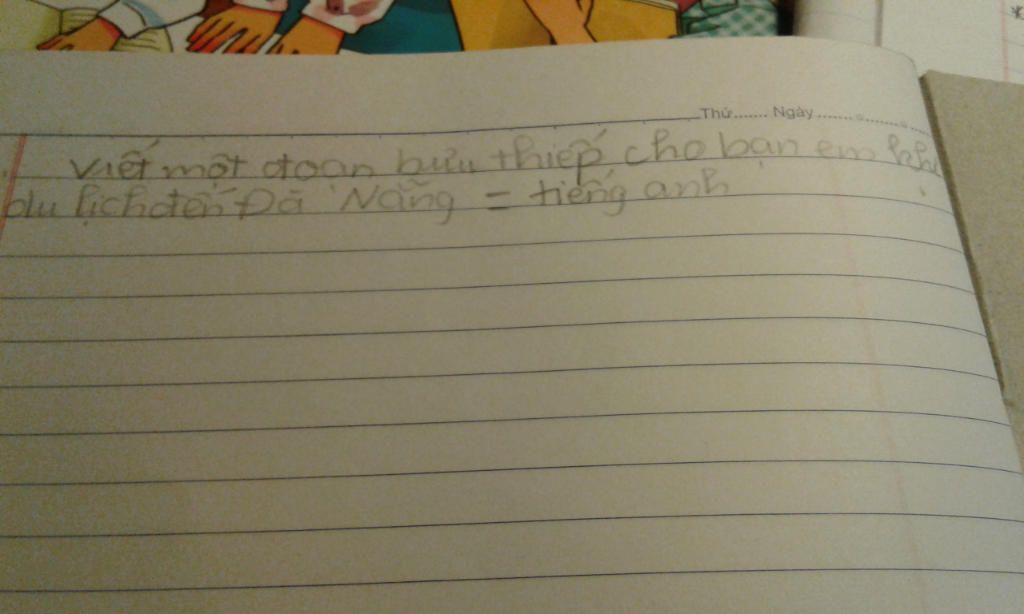 Thứ....... Ngày ...................
Viết một đoạn bưu thiếp cho bạn em khi
du lịch đến Đà Nẵng = tiếng anh